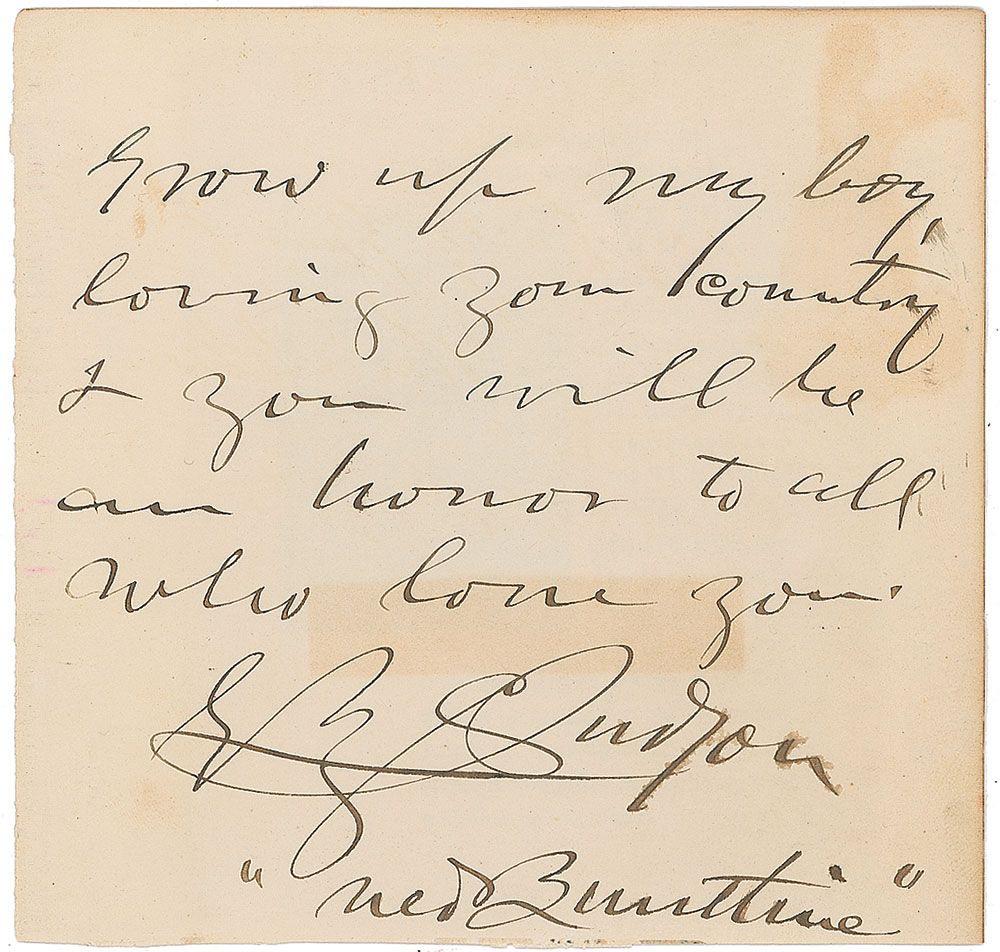 Grow up my boy,
loving your country
& you will be
an honor to all
who love you.
E Z C Judson
"Ned Buntline"